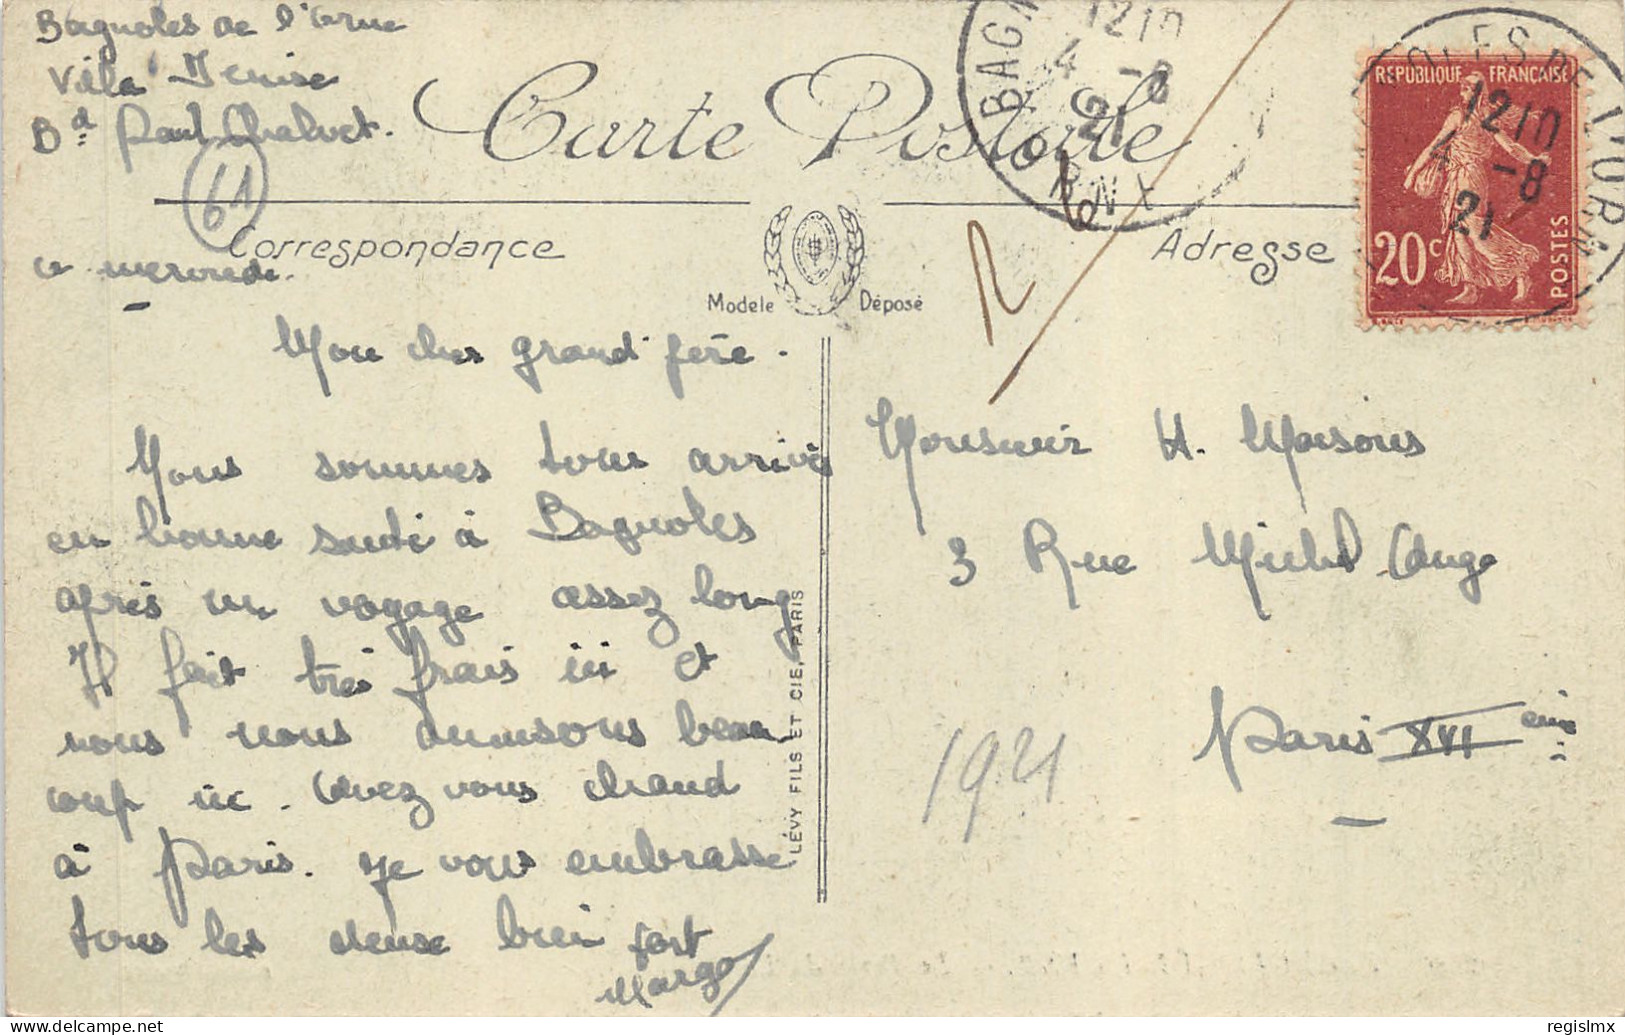 Bagnoles de l'Orne
Villa Denise
Bd Paul Chalvet.
61
Carte Postale
Correspondance
Adresse
Modèle Déposé
ce mercredi.
Mon cher grand père.
Nous sommes tous arrivés
en bonne santé à Bagnoles
après un voyage assez long
Il fait très frais ici et
nous nous amusons beau
coup ici. Avez vous chaud
à Paris. Je vous embrasse
tous les deux bien fort
Margo
LÉVY FILS ET CIE, PARIS
BAGN
ORNE
12 10
4 -8
21
OLES DE L'ORN
12 10
4 -8
21
REPUBLIQUE FRANÇAISE
20c
POSTES
Monsieur H. Maisons
3 Rue Michel Ange
Paris XVI eme
1921
www.delcampe.net
regislmx